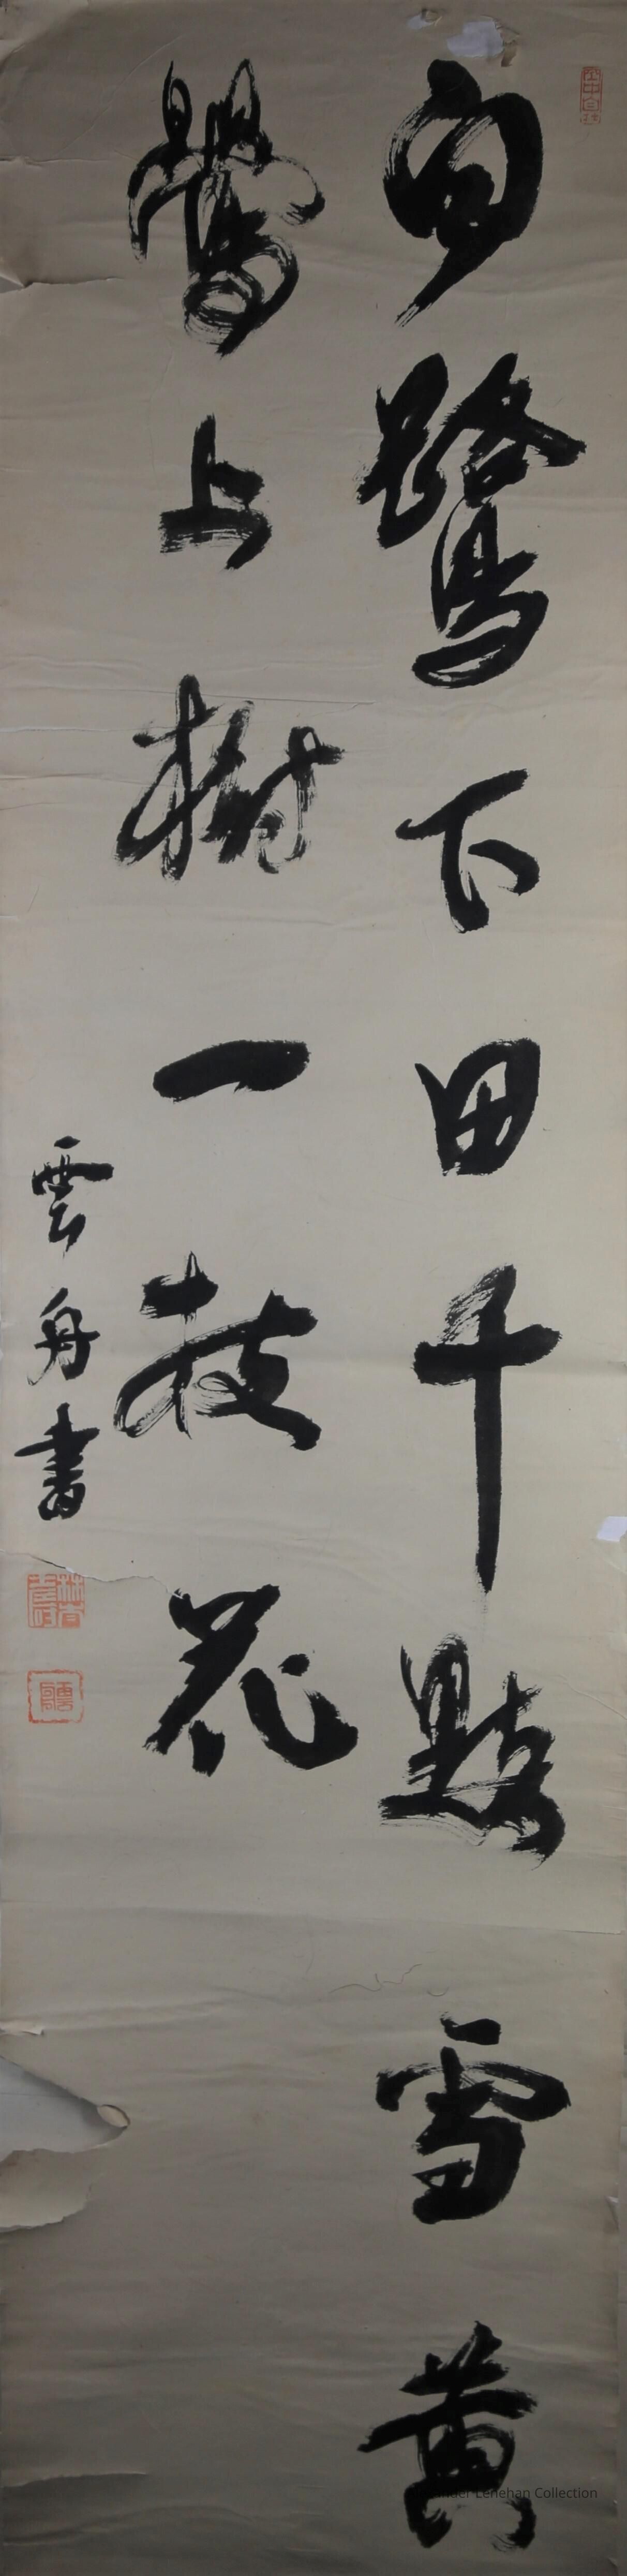 白鷺下田千點雪黄
鶯上樹一枝花
雲舟書
Lenehan Collection